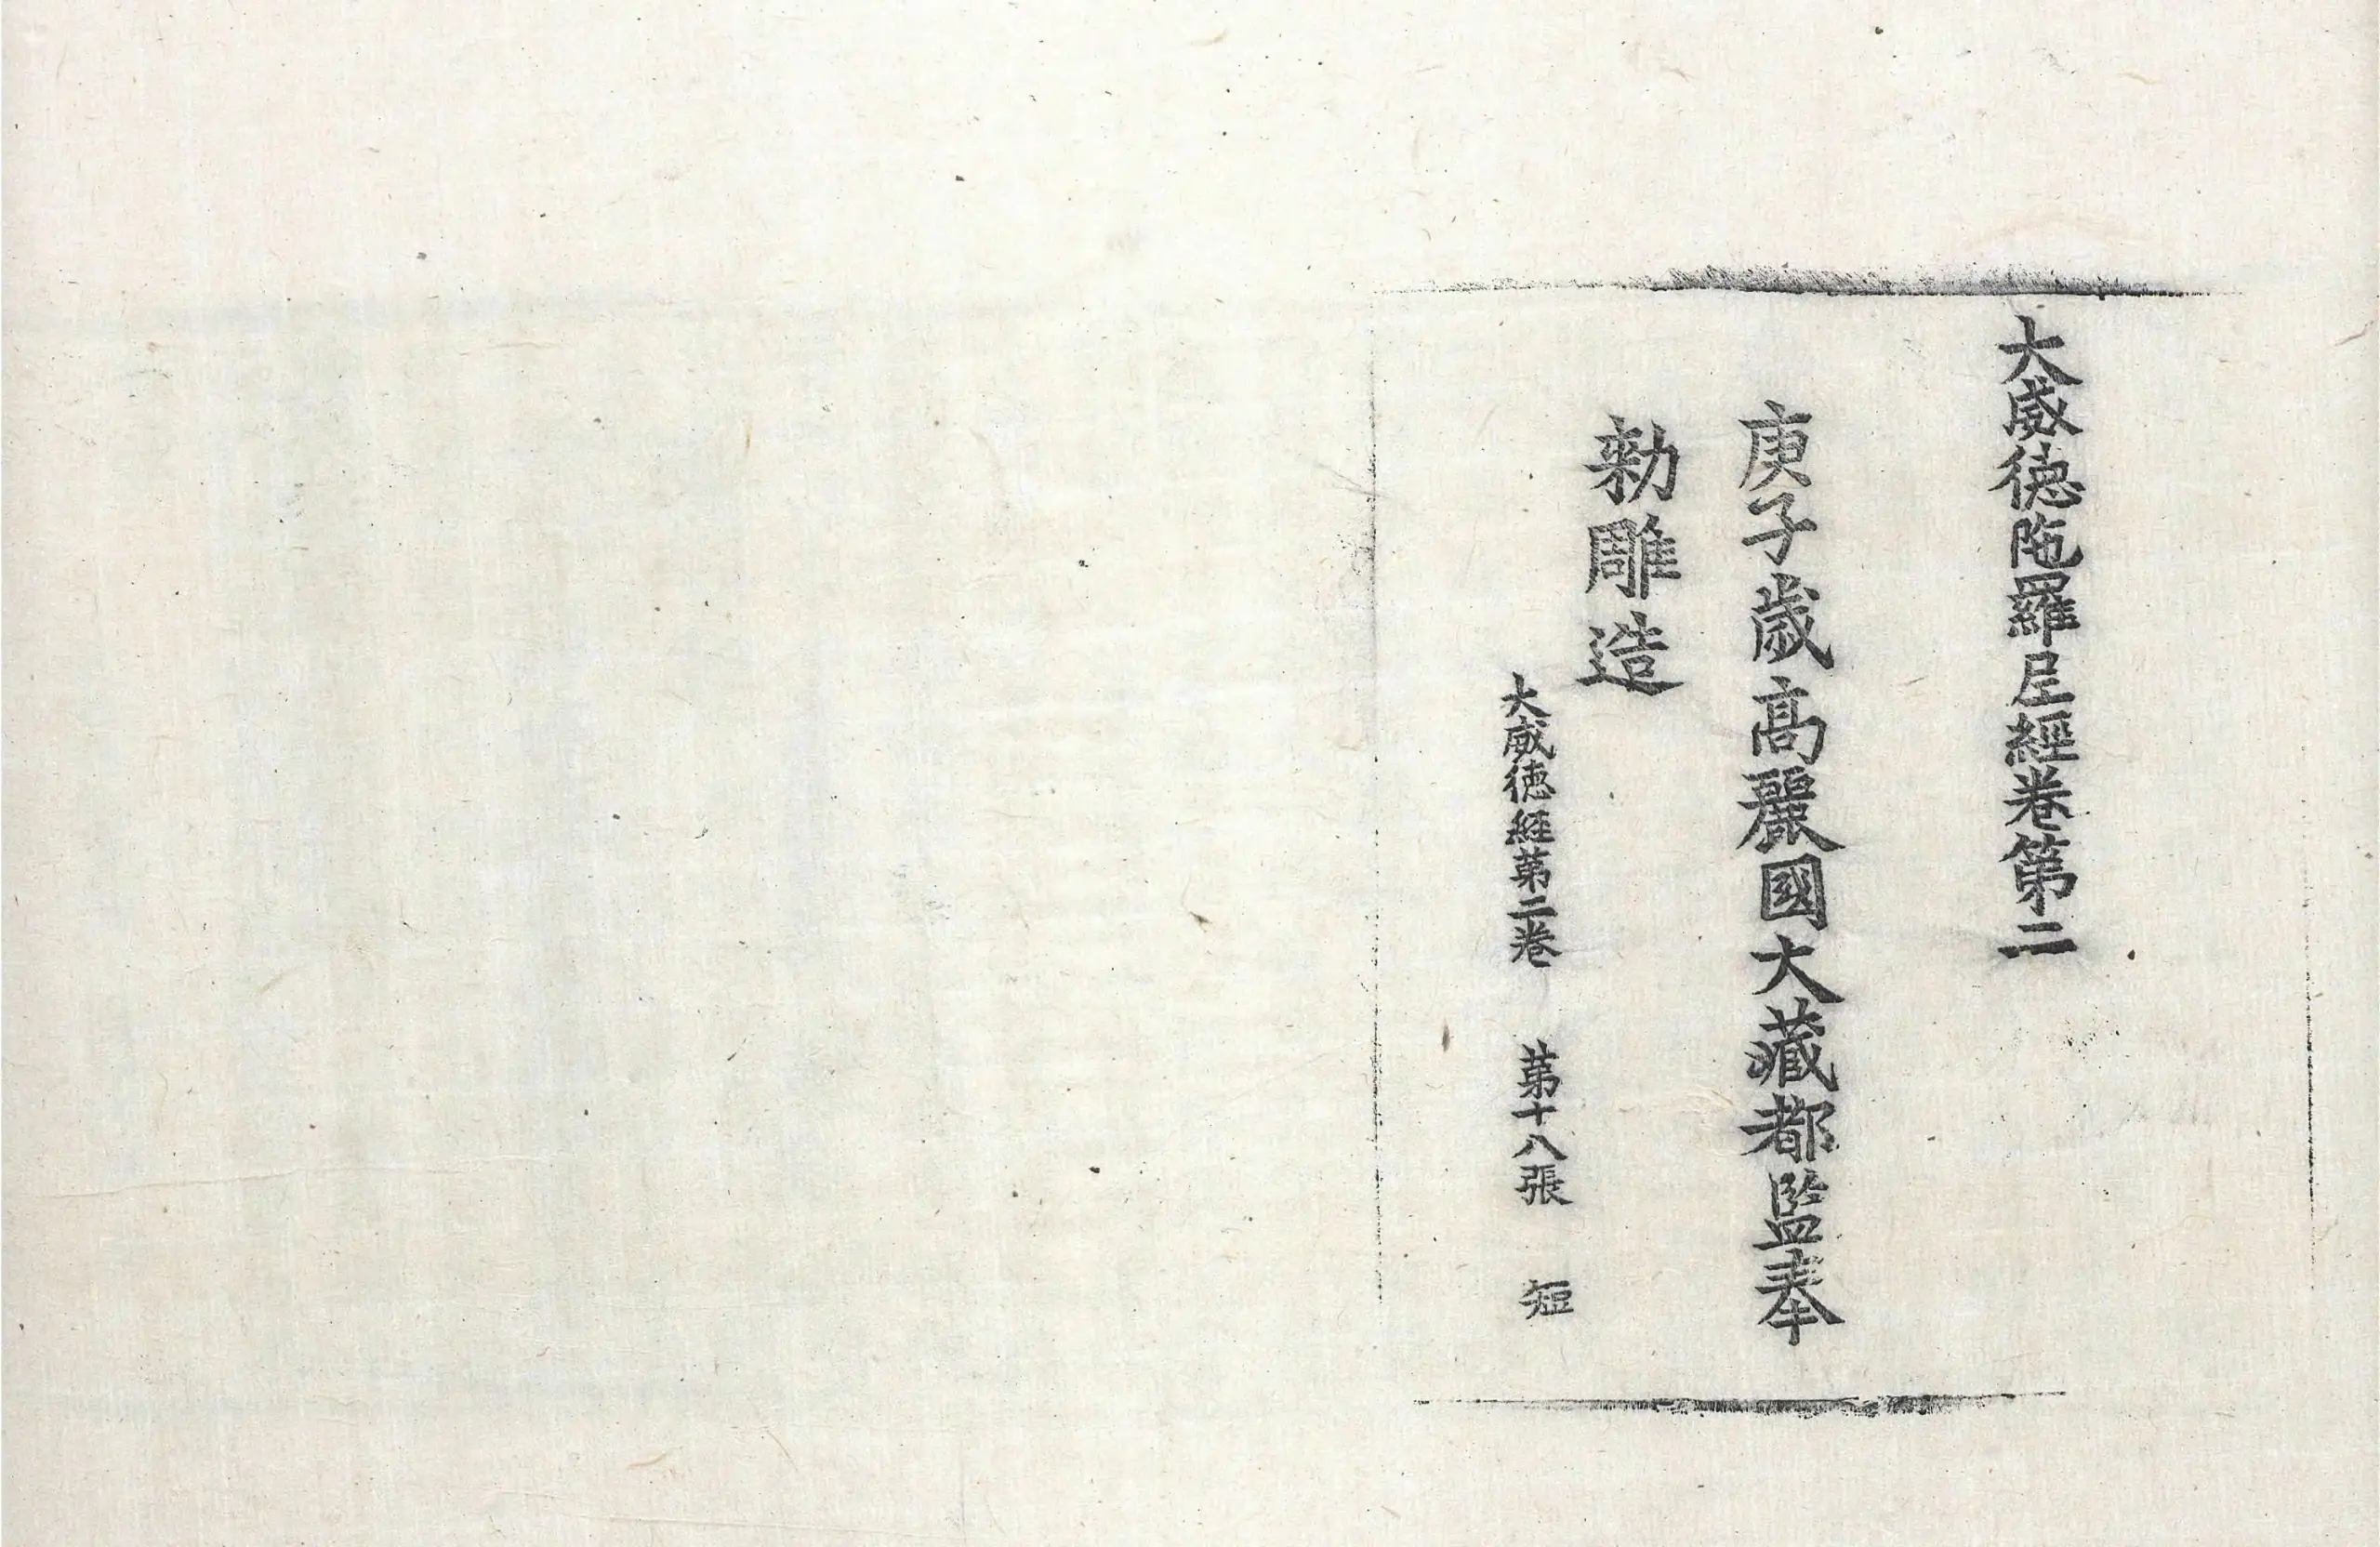 大威德陁羅𡰱經卷第二
庚子歲高麗國大藏都監奉
勑雕造
大威德経苐二卷 苐十八張 短